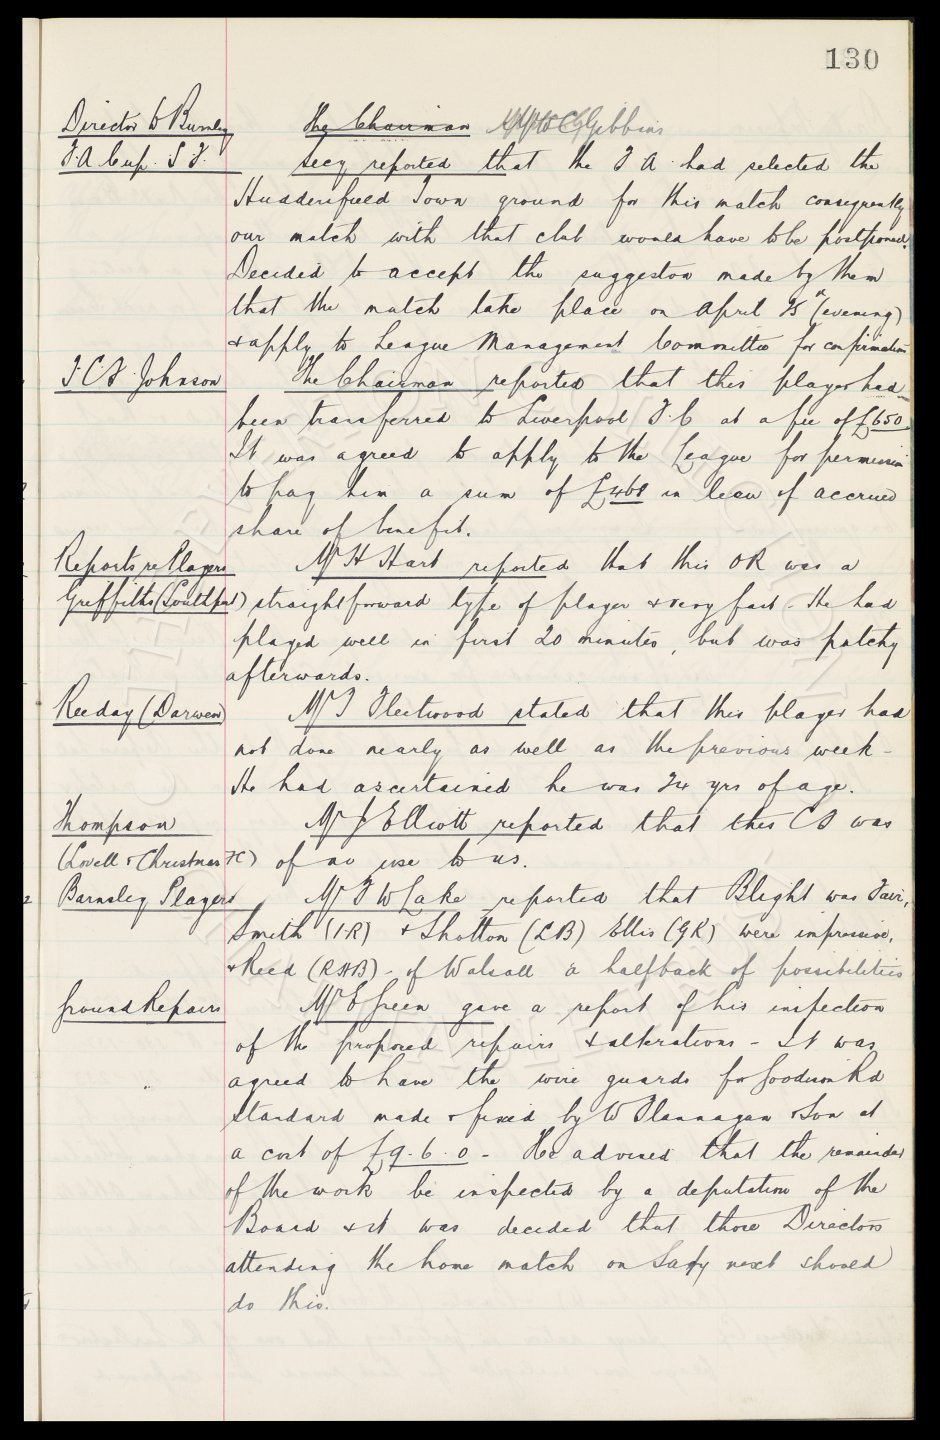 130
Director to Burnley The Chairman Gibbins
F.A. Cup. S F. Secy reported that the F A had selected the
Huddersfield Town ground for this match consequently
our match with that club would have to be postponed.
Decided to accept the suggestion made by them
that the match take place on April 25 (evening)
& apply to League Management Committee for confirmation
T C F Johnson The Chairman reported that this player had
been transferred to Liverpool F.C at a fee of £650.
It was agreed to apply to the League for permission
to pay him a sum of in lieu of accrued
share of benefit.
Reports re Players Mr H Hart reported that this OR was a
Griffiths (Southport) straightforward type of player & very fast - He had
played well in first 20 minutes, but was patchy
afterwards.
Reeday (Darwen) Mr T Fleetwood stated that this player had
not done nearly as well as the previous week -
He had ascertained he was 24 yrs of age.
Thompson Mr J Elliott reported that this CF was
(Lovell & Christmas FC) of no use to us.
Barnsley Players Mr F W Lake reported that Blight was Fair,
Smith (I.R) & Shotton (LB) Ellis (GK) were impressive,
& Reed (RHB) - of Walsall a halfback of possibilities
Ground Repairs Mr E Green gave a report of his inspection
of the proposed repairs & alterations - It was
agreed to have the wire guards for Goodison Rd
Standard made & fixed by W Flannagan & Son at
a cost of £9.6.0 - He advised that the remainder
of the work be inspected by a deputation of the
Board & it was decided that those Directors
attending the home match on Satdy next should
do this.